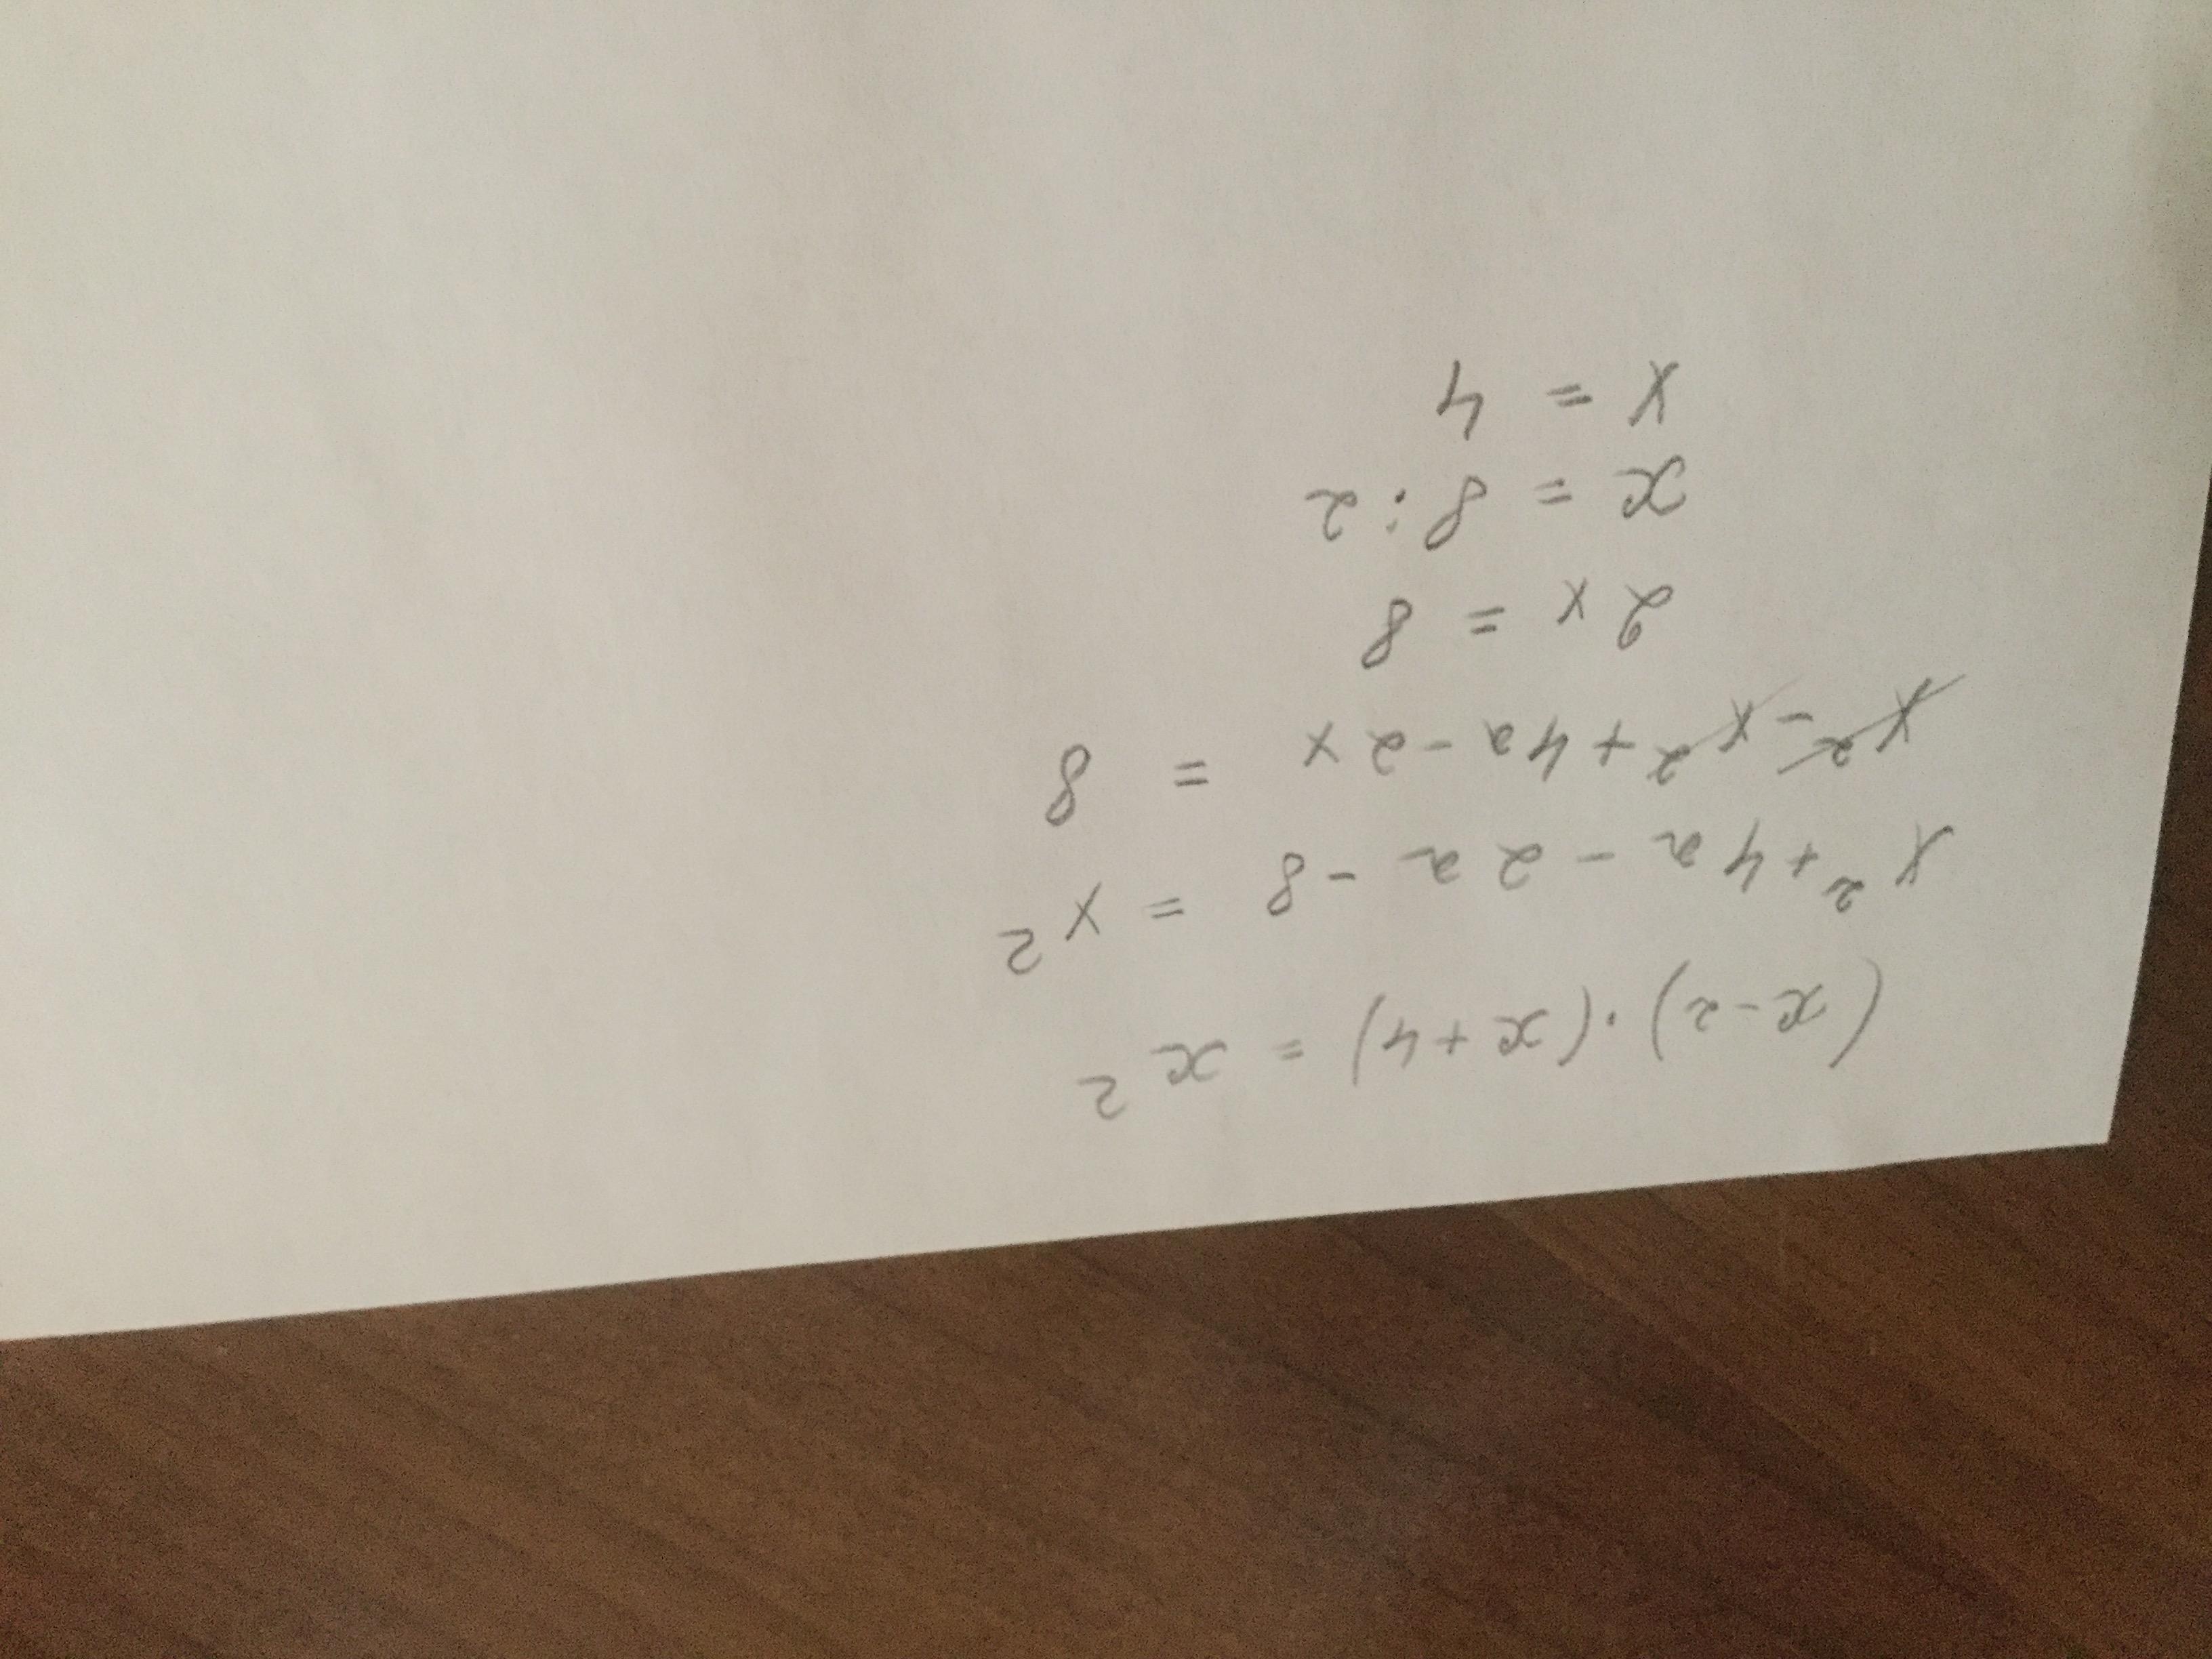 (x-2)·(x+4) = x²
x²+4a - 2a -8 = x²
x²-x²+4a-2x = 8
2x = 8
x = 8:2
x = 4